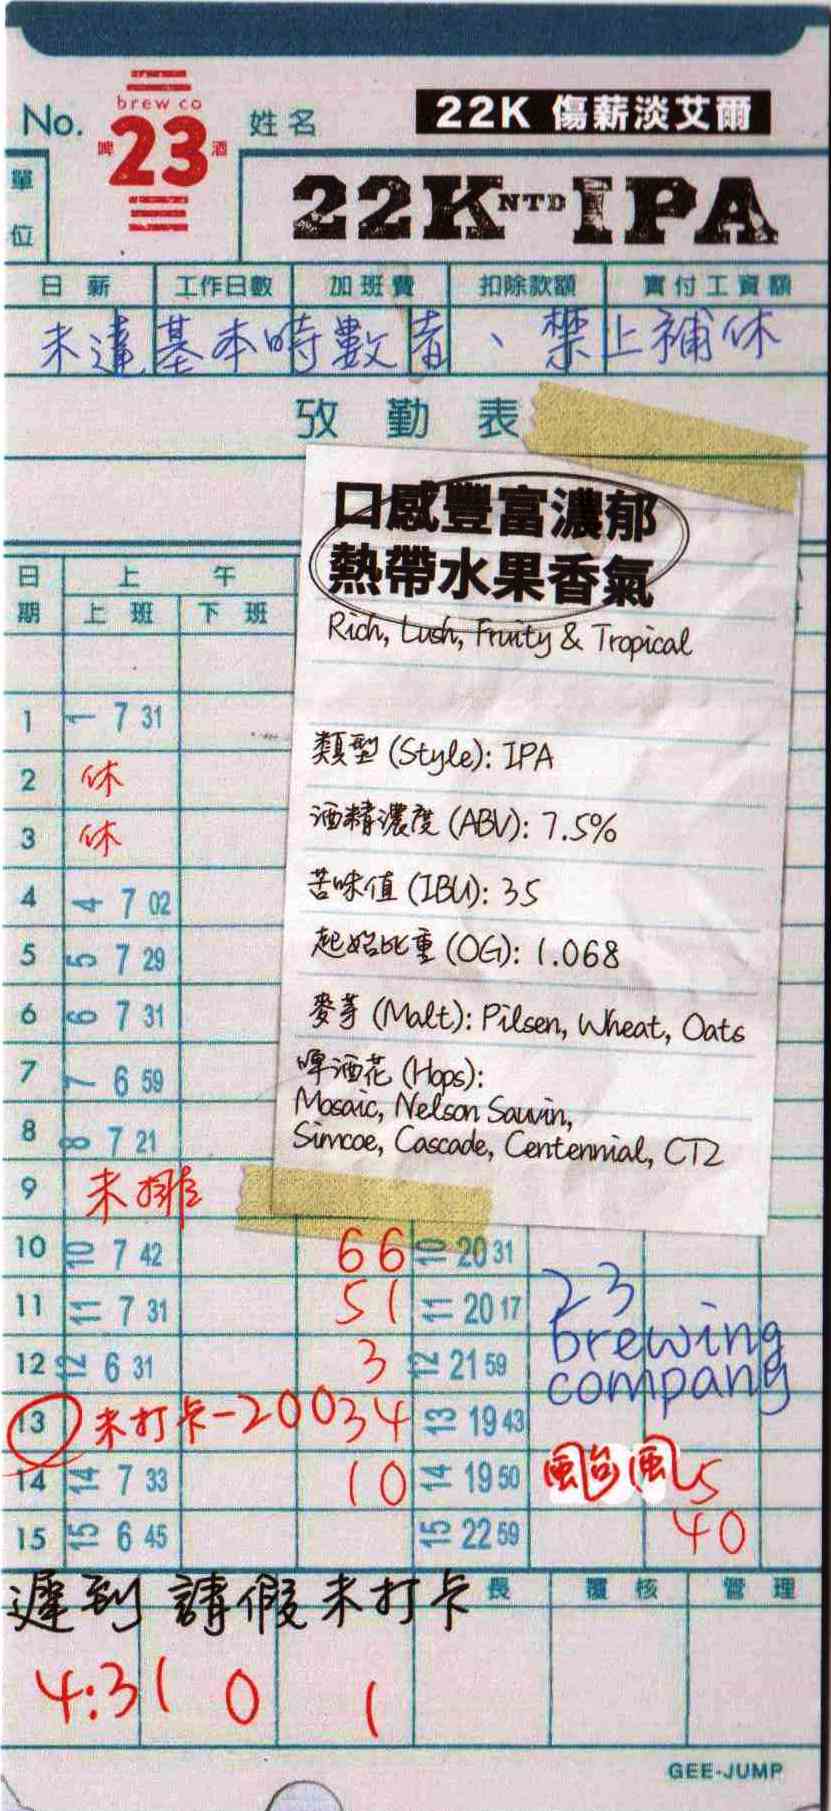 No. brew co 啤23酒 姓名 22K 傷薪淡艾爾
單位 22K NTD IPA
日薪 工作日數 加班費 扣除款額 實付工資額
未達基本時數者、禁止補休
攷勤表
口感豐富濃郁
熱帶水果香氣
Rich, Lush, Fruity & Tropical
類型 (Style): IPA
酒精濃度 (ABV): 7.5%
苦味值 (IBU): 35
起始比重 (OG): 1.068
麥芽 (Malt): Pilsen, Wheat, Oats
啤酒花 (Hops):
Mosaic, Nelson Sauvin,
Simcoe, Cascade, Centennial, CTZ
日期 上午
上班 下班
1 1 7 31
2 休
3 休
4 4 7 02
5 5 7 29
6 6 7 31
7 7 6 59
8 8 7 21
9 未排
10 10 7 42 66 10 20 31
11 11 7 31 51 11 20 17
12 12 6 31 3 12 21 59
23
brewing
company
13 未打卡-200 34 13 19 43
14 14 7 33 10 14 19 50 颱風 5
15 15 6 45 15 22 59 40
遲到 請假 未打卡 長 覆核 管理
4:31 0 1
GEE-JUMP